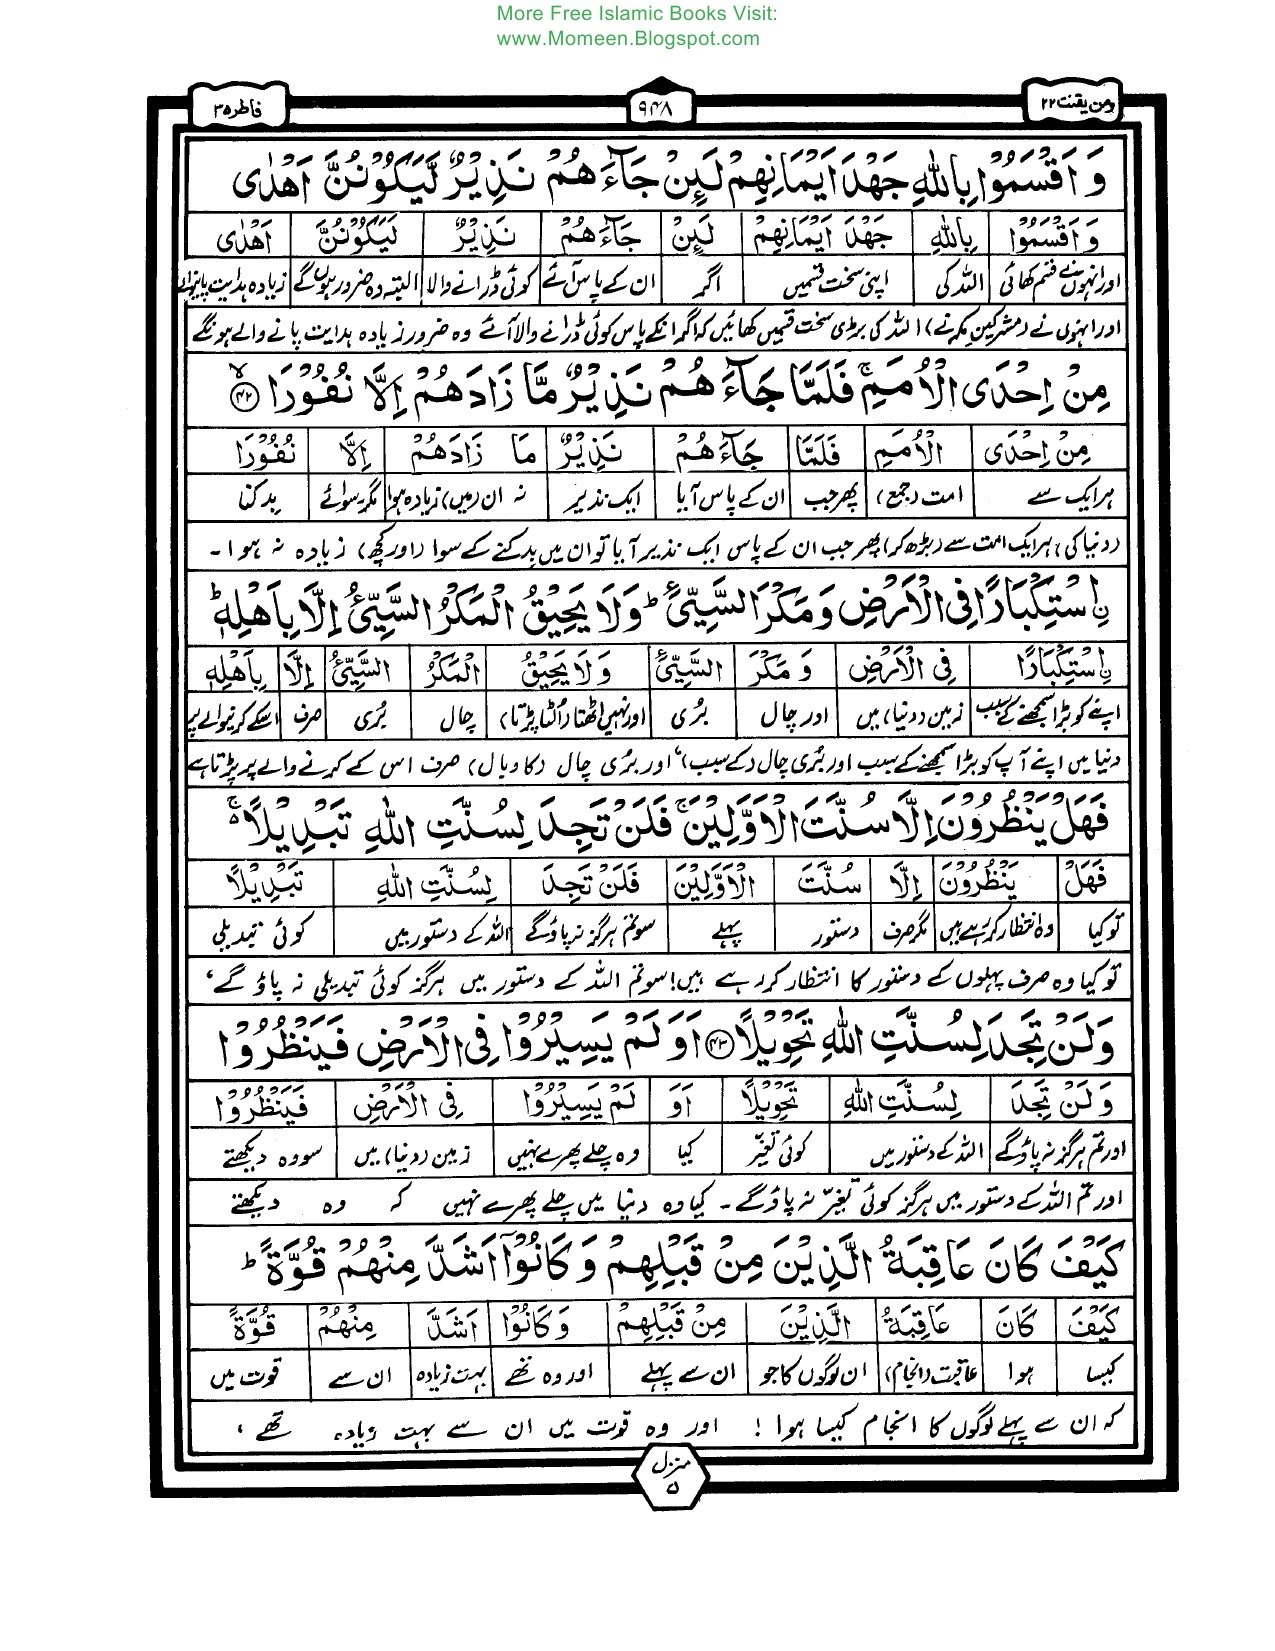 More Free Islamic Books Visit:
www.Momeen.Blogspot.com
ومن یقنت ۲۲
۹۴۸
فاطر ۳۵
وَاَقْسَمُوْا بِاللّٰهِ جَهْدَ اَيْمَانِهِمْ لَئِنْ جَآءَهُمْ نَذِيْرٌ لَّيَكُوْنُنَّ اَهْدٰى
وَاَقْسَمُوْا بِاللّٰهِ جَهْدَ اَيْمَانِهِمْ لَئِنْ جَآءَهُمْ نَذِيْرٌ لَيَكُوْنُنَّ اَهْدٰى
اور انہوں نے قسم کھائی اللہ کی اپنی سخت قسمیں اگر ان کے پاس آئے کوئی ڈرانے والا البتہ وہ ضرور ہوں گے زیادہ ہدایت پانیوالے
اور انہوں نے (مشرکین مکہ نے) اللہ کی بڑی سخت قسمیں کھائیں کہ اگر انکے پاس کوئی ڈرانے والا آئے وہ ضرور زیادہ ہدایت پانے والے ہونگے
مِنْ اِحْدَى الْاُمَمِ ۚ فَلَمَّا جَآءَهُمْ نَذِيْرٌ مَّا زَادَهُمْ اِلَّا نُفُوْرَا ۙ۝۴۲
مِنْ اِحْدَى الْاُمَمِ فَلَمَّا جَآءَهُمْ نَذِيْرٌ مَا زَادَهُمْ اِلَّا نُفُوْرَا
ہر ایک سے امت (جمع) پھر جب ان کے پاس آیا ایک نذیر نہ ان (میں) زیادہ ہوا مگر سوائے بدکنا
(دنیا کی) ہر ایک امت سے (بڑھ کر) پھر جب ان کے پاس ایک نذیر آیا تو ان میں بدکنے کے سوا (اور کچھ) زیادہ نہ ہوا۔
ۨاسْتِكْبَارًا فِى الْاَرْضِ وَمَكْرَ السَّيِّئِ ؕ وَلَا يَحِيْقُ الْمَكْرُ السَّيِّئُ اِلَّا بِاَهْلِهٖ ؕ
ۨاسْتِكْبَارًا فِى الْاَرْضِ وَمَكْرَ السَّيِّئِ وَلَا يَحِيْقُ الْمَكْرُ السَّيِّئُ اِلَّا بِاَهْلِهٖ
اپنے کو بڑا سمجھنے کے سبب زمین (دنیا) میں اور چال بُری اور نہیں اٹھتا (الٹا پڑتا) چال بُری صرف اسکے کرنیوالے پر
دنیا میں اپنے آپ کو بڑا سمجھنے کے سبب اور بُری چال (کے سبب)، اور بُری چال (کا وبال) صرف اس کے کرنے والے پر پڑتا ہے
فَهَلْ يَنْظُرُوْنَ اِلَّا سُنَّتَ الْاَوَّلِيْنَ ۚ فَلَنْ تَجِدَ لِسُنَّتِ اللّٰهِ تَبْدِيْلًا ۚ۬
فَهَلْ يَنْظُرُوْنَ اِلَّا سُنَّتَ الْاَوَّلِيْنَ فَلَنْ تَجِدَ لِسُنَّتِ اللّٰهِ تَبْدِيْلًا
تو کیا وہ انتظار کر رہے ہیں مگر صرف دستور پہلے سو تم ہرگز نہ پاؤ گے اللہ کے دستور میں کوئی تبدیلی
تو کیا وہ صرف پہلوں کے دستور کا انتظار کر رہے ہیں! سو تم اللہ کے دستور میں ہرگز کوئی تبدیلی نہ پاؤ گے،
وَلَنْ تَجِدَ لِسُنَّتِ اللّٰهِ تَحْوِيْلًا ۝۴۳ اَوَلَمْ يَسِيْرُوْا فِى الْاَرْضِ فَيَنْظُرُوْا
وَلَنْ تَجِدَ لِسُنَّتِ اللّٰهِ تَحْوِيْلًا اَوَ لَمْ يَسِيْرُوْا فِى الْاَرْضِ فَيَنْظُرُوْا
اور تم ہرگز نہ پاؤ گے اللہ کے دستور میں کوئی تغیّر کیا وہ چلے پھرے نہیں زمین (دنیا) میں سو وہ دیکھتے
اور تم اللہ کے دستور میں ہرگز کوئی تغیّر نہ پاؤ گے۔ کیا وہ دنیا میں چلے پھرے نہیں کہ وہ دیکھتے
كَيْفَ كَانَ عَاقِبَةُ الَّذِيْنَ مِنْ قَبْلِهِمْ وَكَانُوْۤا اَشَدَّ مِنْهُمْ قُوَّةً ؕ
كَيْفَ كَانَ عَاقِبَةُ الَّذِيْنَ مِنْ قَبْلِهِمْ وَكَانُوْا اَشَدَّ مِنْهُمْ قُوَّةً
کیسا ہوا عاقبت (انجام) ان لوگوں کا جو ان سے پہلے اور وہ تھے بہت زیادہ ان سے قوت میں
کہ ان سے پہلے لوگوں کا انجام کیسا ہوا! اور وہ قوت میں ان سے بہت زیادہ تھے،
منزل ۵